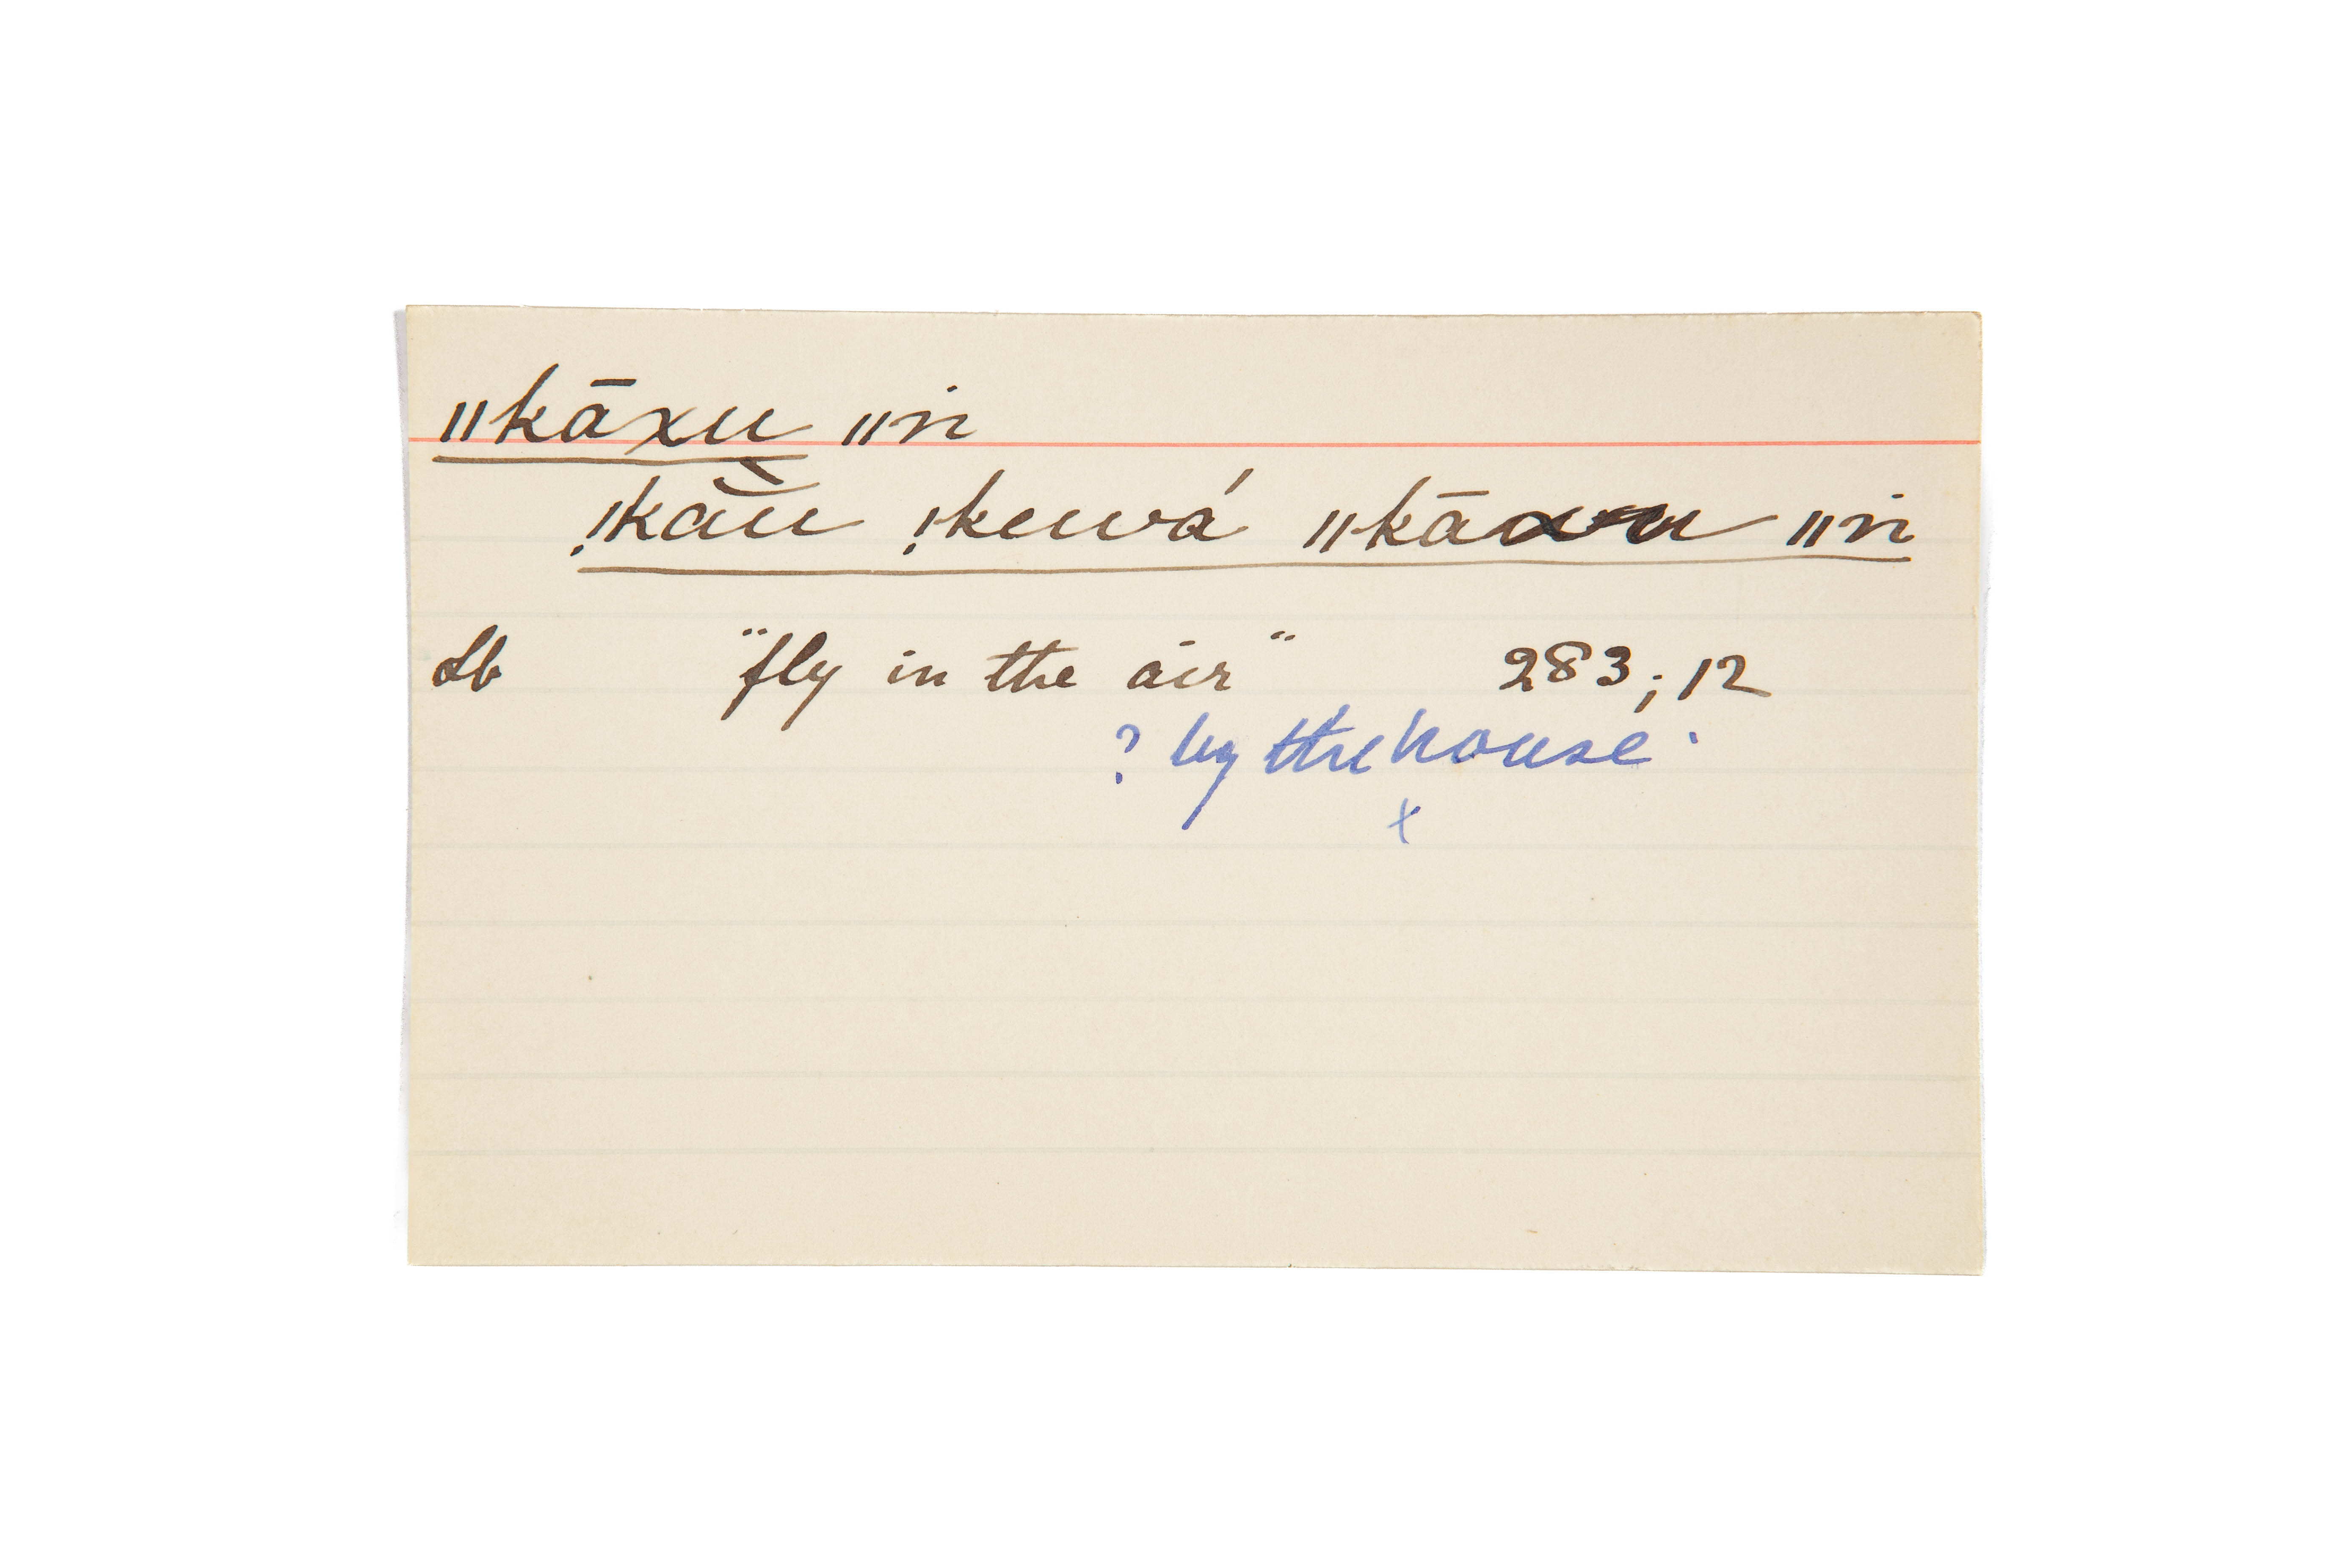 ǁkāxu ǁn
!kaù̯ !kewá ǁkāxu ǁn
Lb "fly in the air" 283; 12
? by the house
x